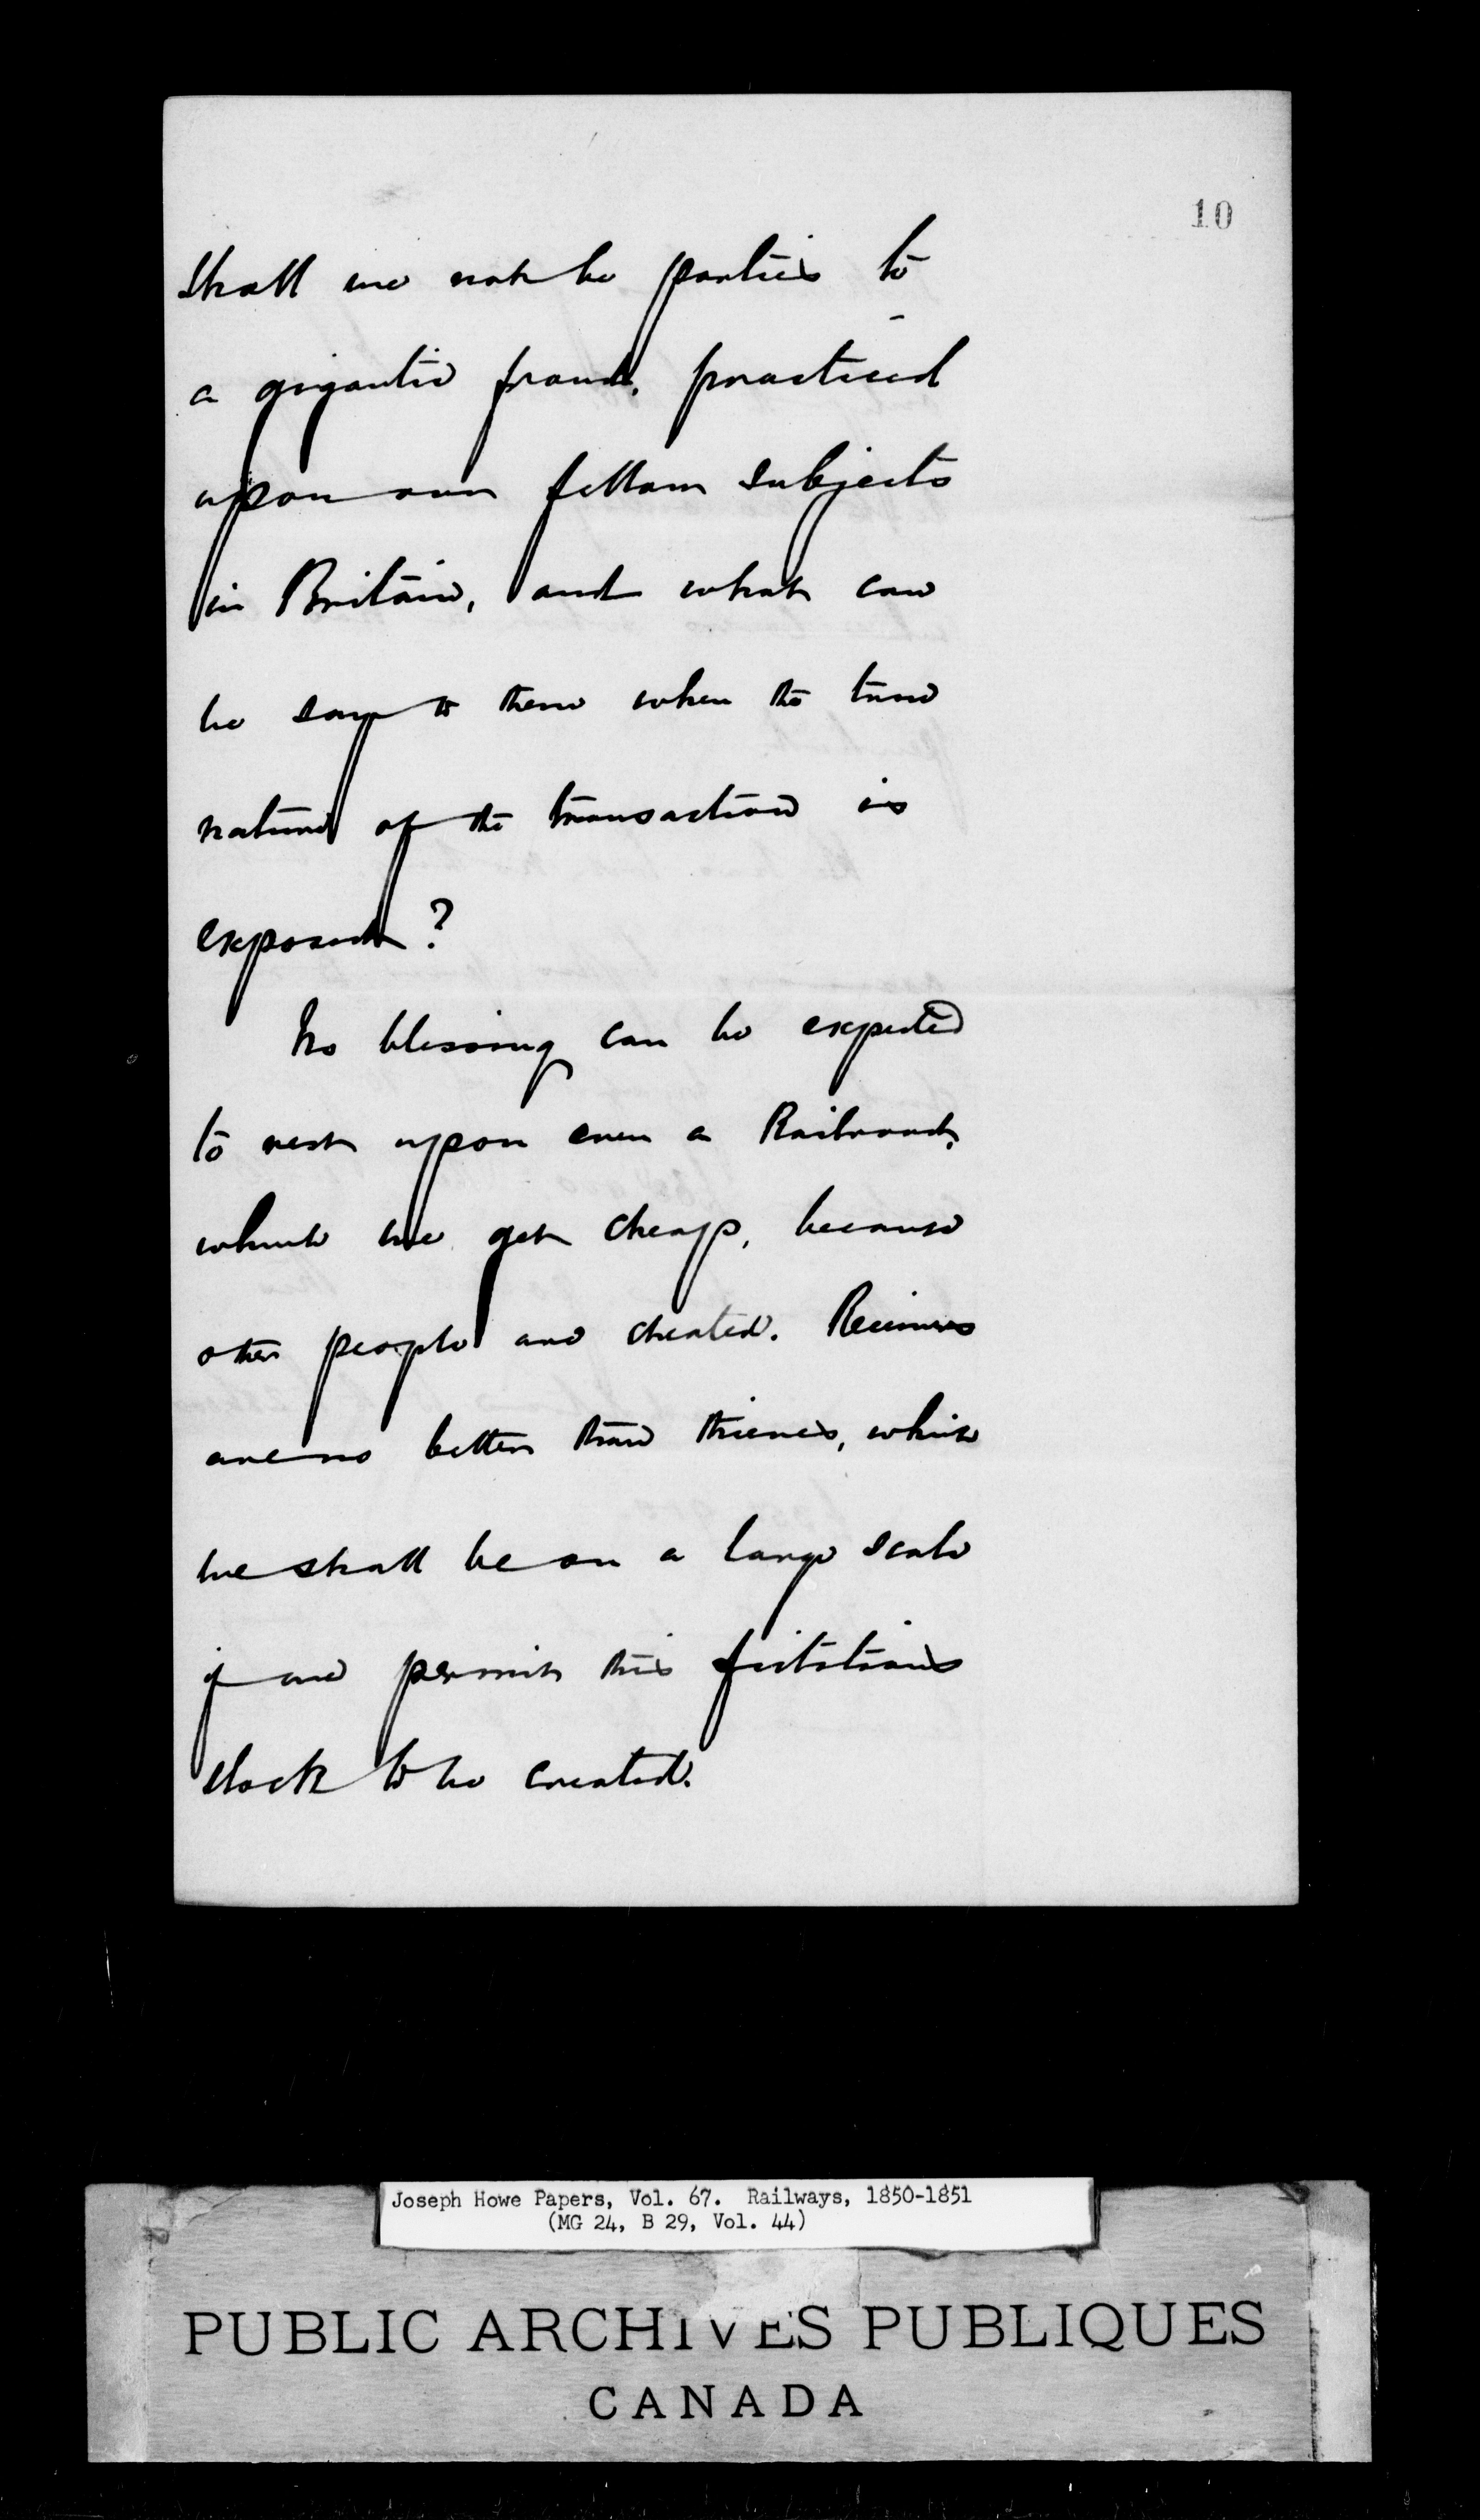 10
Shall we not be parties to
a gigantic fraud, practiced
upon our fellow subjects
in Britain, and what can
be say to them when the true
nature of the transaction is
exposed?
No blessing can be expected
to rest upon even a Railroad,
which we get cheap, because
other people are cheated. Receivers
are no better than thieves, which
we shall be on a large scale
if we permit this fictitious
stock to be created.
Joseph Howe Papers, Vol. 67. Railways, 1850-1851
(MG 24, B 29, Vol. 44)
PUBLIC ARCHIVES PUBLIQUES
CANADA